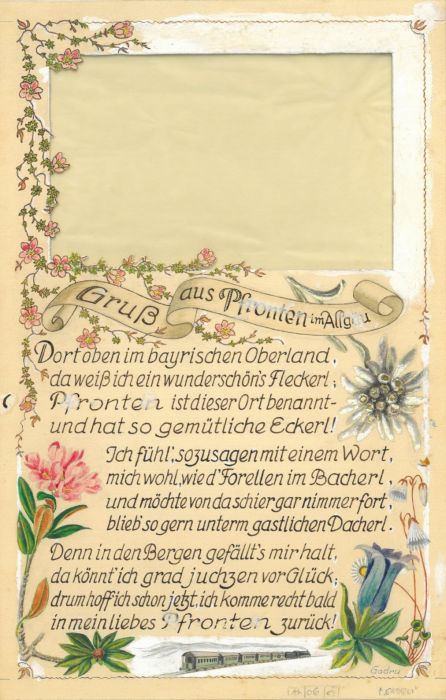 Gruß aus Pfronten im Allgäu
Dort oben im bayrischen Oberland,
da weiß ich ein wunderschön's Fleckerl;
Pfronten ist dieser Ort benannt-
und hat so gemütliche Eckerl!
Ich fühl', sozusagen mit einem Wort,
mich wohl, wie d'Forellen im Bacherl,
und möchte von da schier gar nimmer fort,
blieb' so gern unterm gastlichen Dacherl.
Denn in den Bergen gefällt's mir halt,
da könnt' ich grad juchzen vor Glück,
drum hoff' ich schon jetzt, ich komme recht bald
in mein liebes Pfronten zurück!
Gadru